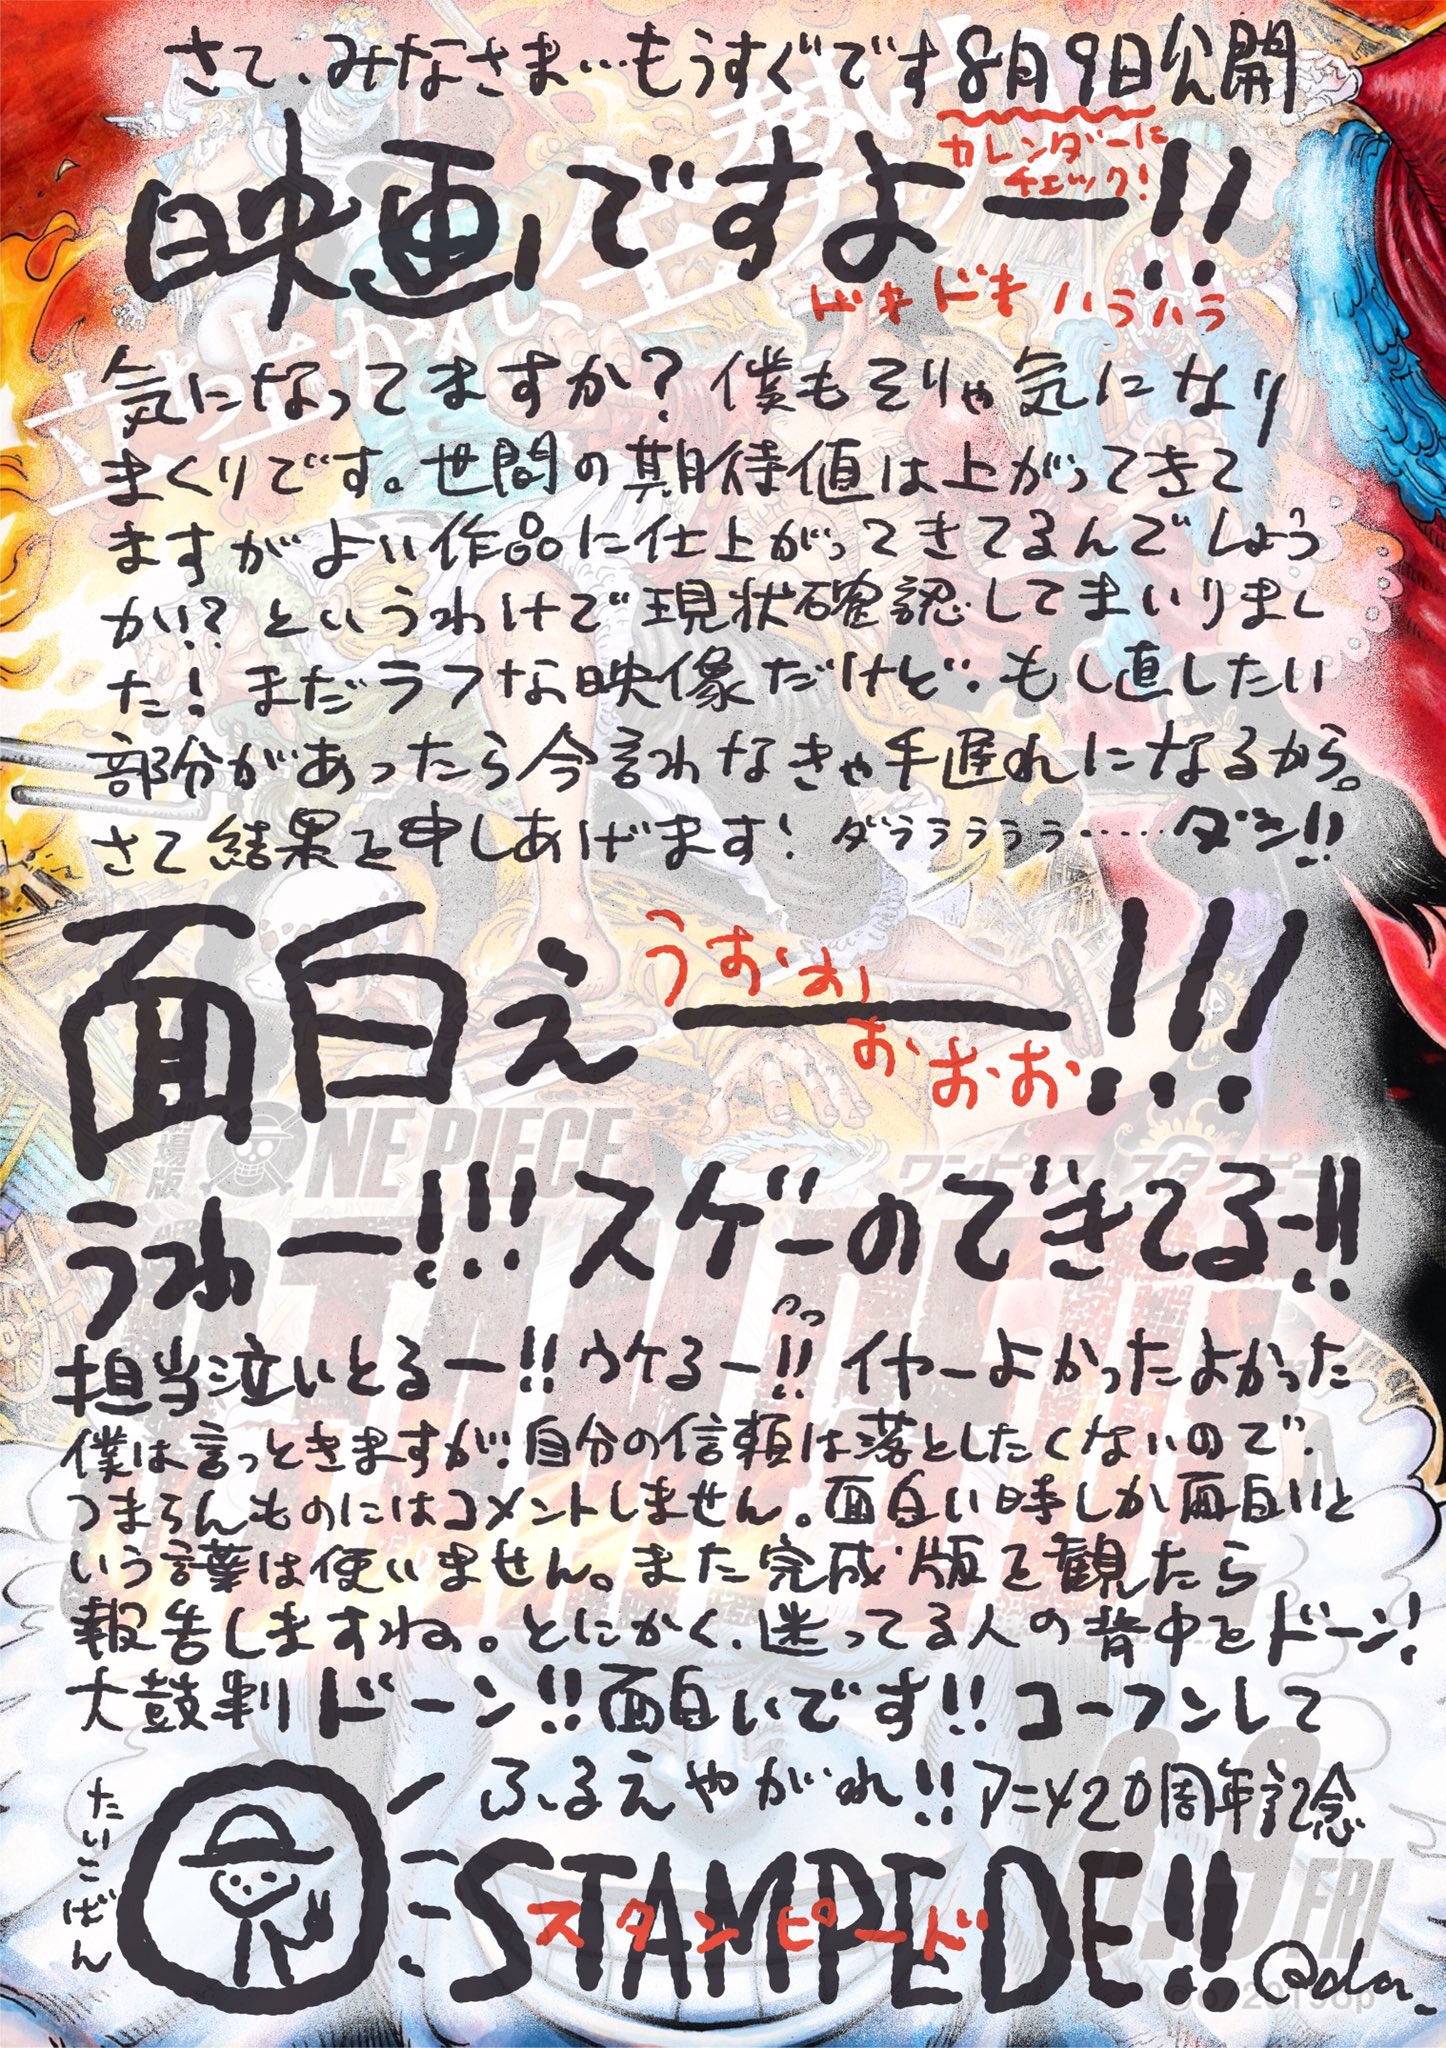 さて、みなさま…もうすぐです8月9日公開
カレンダーに
チェック!
映画ですよー!!
ドキドキハラハラ
気になってますか?僕もそりゃ気になり
まくりです。世間の期待値は上がってきて
ますがよい作品に仕上がってきてるんでしょう
かい?というわけで現状確認してまいりまし
た!まだラフな映像だけど、もし直したい
部分があったら今言わなきゃ手遅れになるから。
さて結果を申しあげます!ダララララララ……ダン!!
面白ぇー!!!
うおおおおお
劇場版 ONE PIECE
ワンピース スタンピード
うわー!!!スゲーのできてるー!!
担当泣いとるー!!ウケるー!!イヤーよかったよかった
僕は言っときますが、自分の信頼は落としたくないので、
つまらんものにはコメントしません。面白い時しか面白いと
いう言葉は使いません。また完成版を観たら
報告しますね。とにかく、迷ってる人の背中をドーン!
太鼓判ドーン!!面白いです!!コーフンして
ふるえやがれ!!アニメ20周年記念
たいこばん
STAMPEDE!!
スタンピード
8.9 FRI